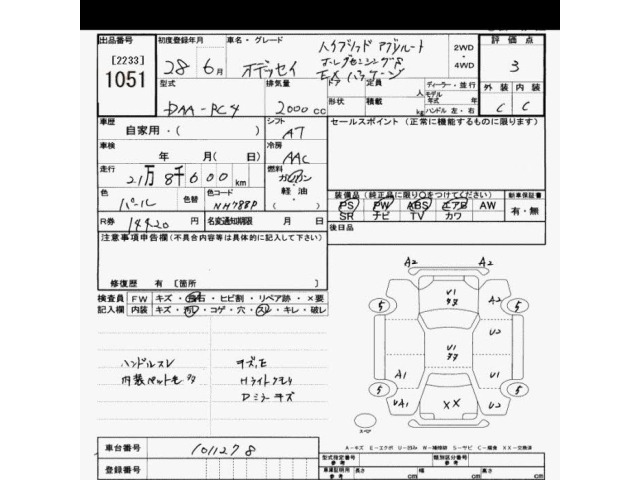 出品番号 初度登録年月 車名・グレード 評価点
[2233]
1051
28年6月 オデッセイ ハイブリッド アブソルート
EXパッケージ
2WD
4WD
3
型式 排気量 ドア 定員 人 ディーラー・並行
モデル
年式 年
DAA-RC4 2000cc 形状 積載 kg ハンドル 左・右
外装 内装
C C
車歴 シフト セールスポイント (正常に機能するものに限ります)
自家用・( ) AT
車検 冷房
年 月(日) AAC
走行 燃料
21万8千600km ガソリン
軽油
色 色替 色コード
パール NH788P
装備品 (純正品に限り○をつけてください) 新車保証書
PS PW ABS エアB AW 有・無
SR ナビ TV カワ
R券 14420 名変通知期限 月 日
後日品
注意事項申告欄(不具合内容等は具体的に記入して下さい)
修復歴 有 [箇所 ]
検査員 FW キズ・飛石・ヒビ割・リペア跡・×要
記入欄 内装 キズ・汚レ・コゲ・穴・スレ・キレ・破レ
ハンドルスレ キズ,E
内装ペット毛 Hライトクモリ
Dミラーキズ
A2 A2
5 U1 A2 5
U2
U1
A1 U1
5 5
UA1 XX U2
スペア
A-キズ E-エクボ U-凹み W-補修跡 S-サビ C-腐食 XX-交換済
車台番号 1011278
登録番号
型式指定番号
参考
類別区分番号
参考
車両証明用
参考
長さ cm 幅 cm 高さ cm